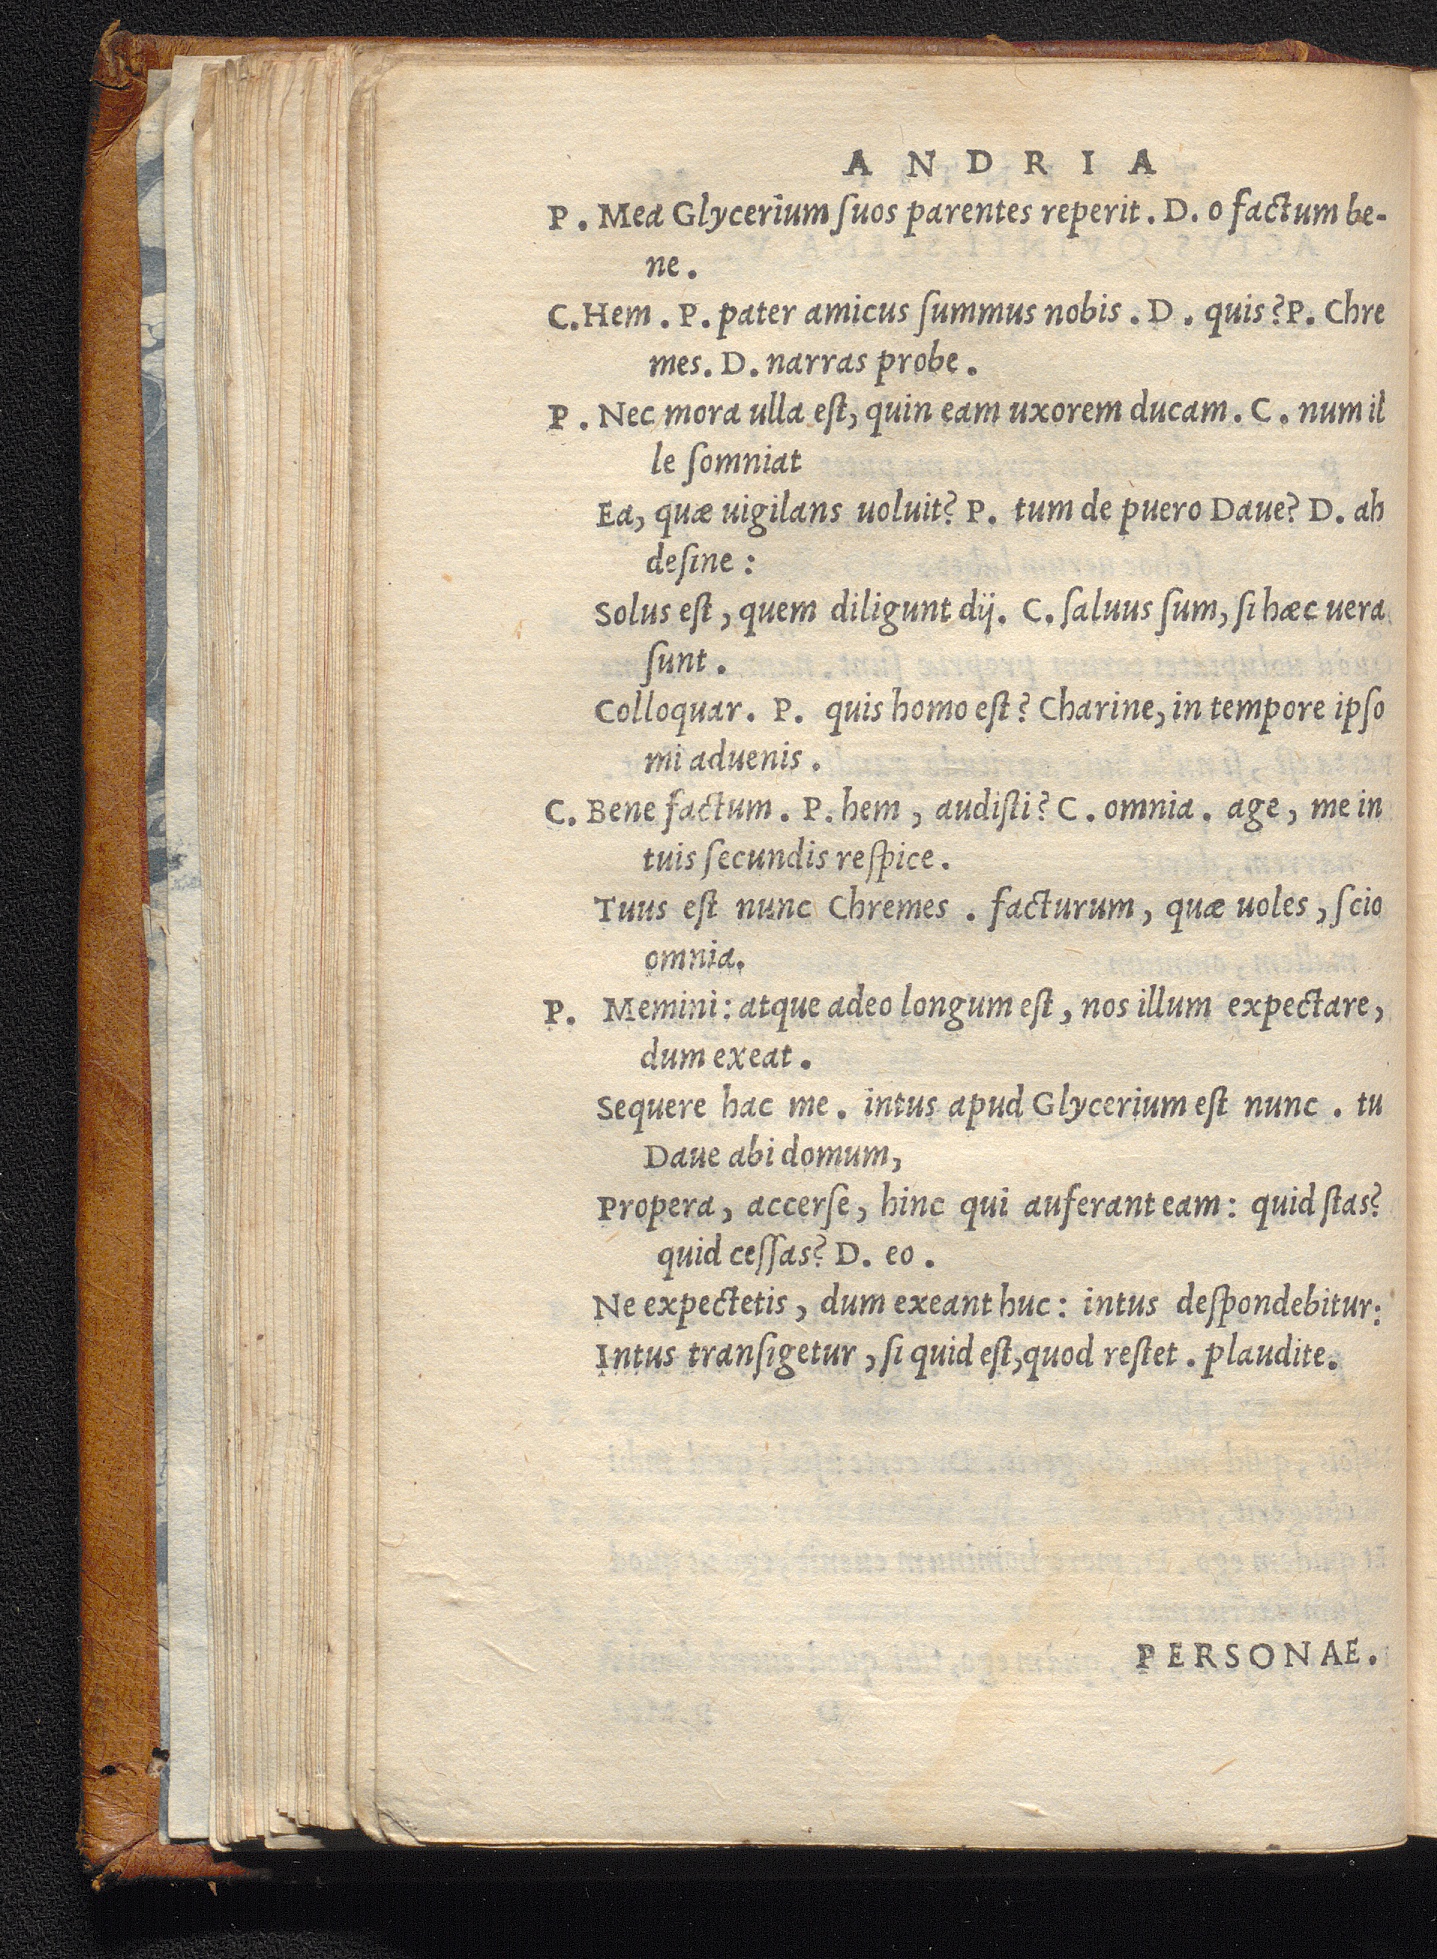 ANDRIA
P. Mea Glycerium ſuos parentes reperit. D. o factum be-
ne.
C. Hem. P. pater amicus ſummus nobis. D. quis? P. Chre
mes. D. narras probe.
P. Nec mora ulla eſt, quin eam uxorem ducam. C. num il
le ſomniat
Ea, quæ uigilans uoluit? P. tum de puero Daue? D. ah
deſine:
Solus eſt, quem diligunt dij. C. ſaluus ſum, ſi hæc uera
ſunt.
Colloquar. P. quis homo eſt? Charine, in tempore ipſo
mi aduenis.
C. Bene factum. P. hem, audiſti? C. omnia. age, me in
tuis ſecundis reſpice.
Tuus eſt nunc Chremes. facturum, quæ uoles, ſcio
omnia.
P. Memini: atque adeo longum eſt, nos illum expectare,
dum exeat.
Sequere hac me. intus apud Glycerium eſt nunc. tu
Daue abi domum,
Propera, accerſe, hinc qui auferant eam: quid ſtas?
quid ceſſas? D. eo.
Ne expectetis, dum exeant huc: intus deſpondebitur:
Intus tranſigetur, ſi quid eſt, quod reſtet. plaudite.
PERSONAE.